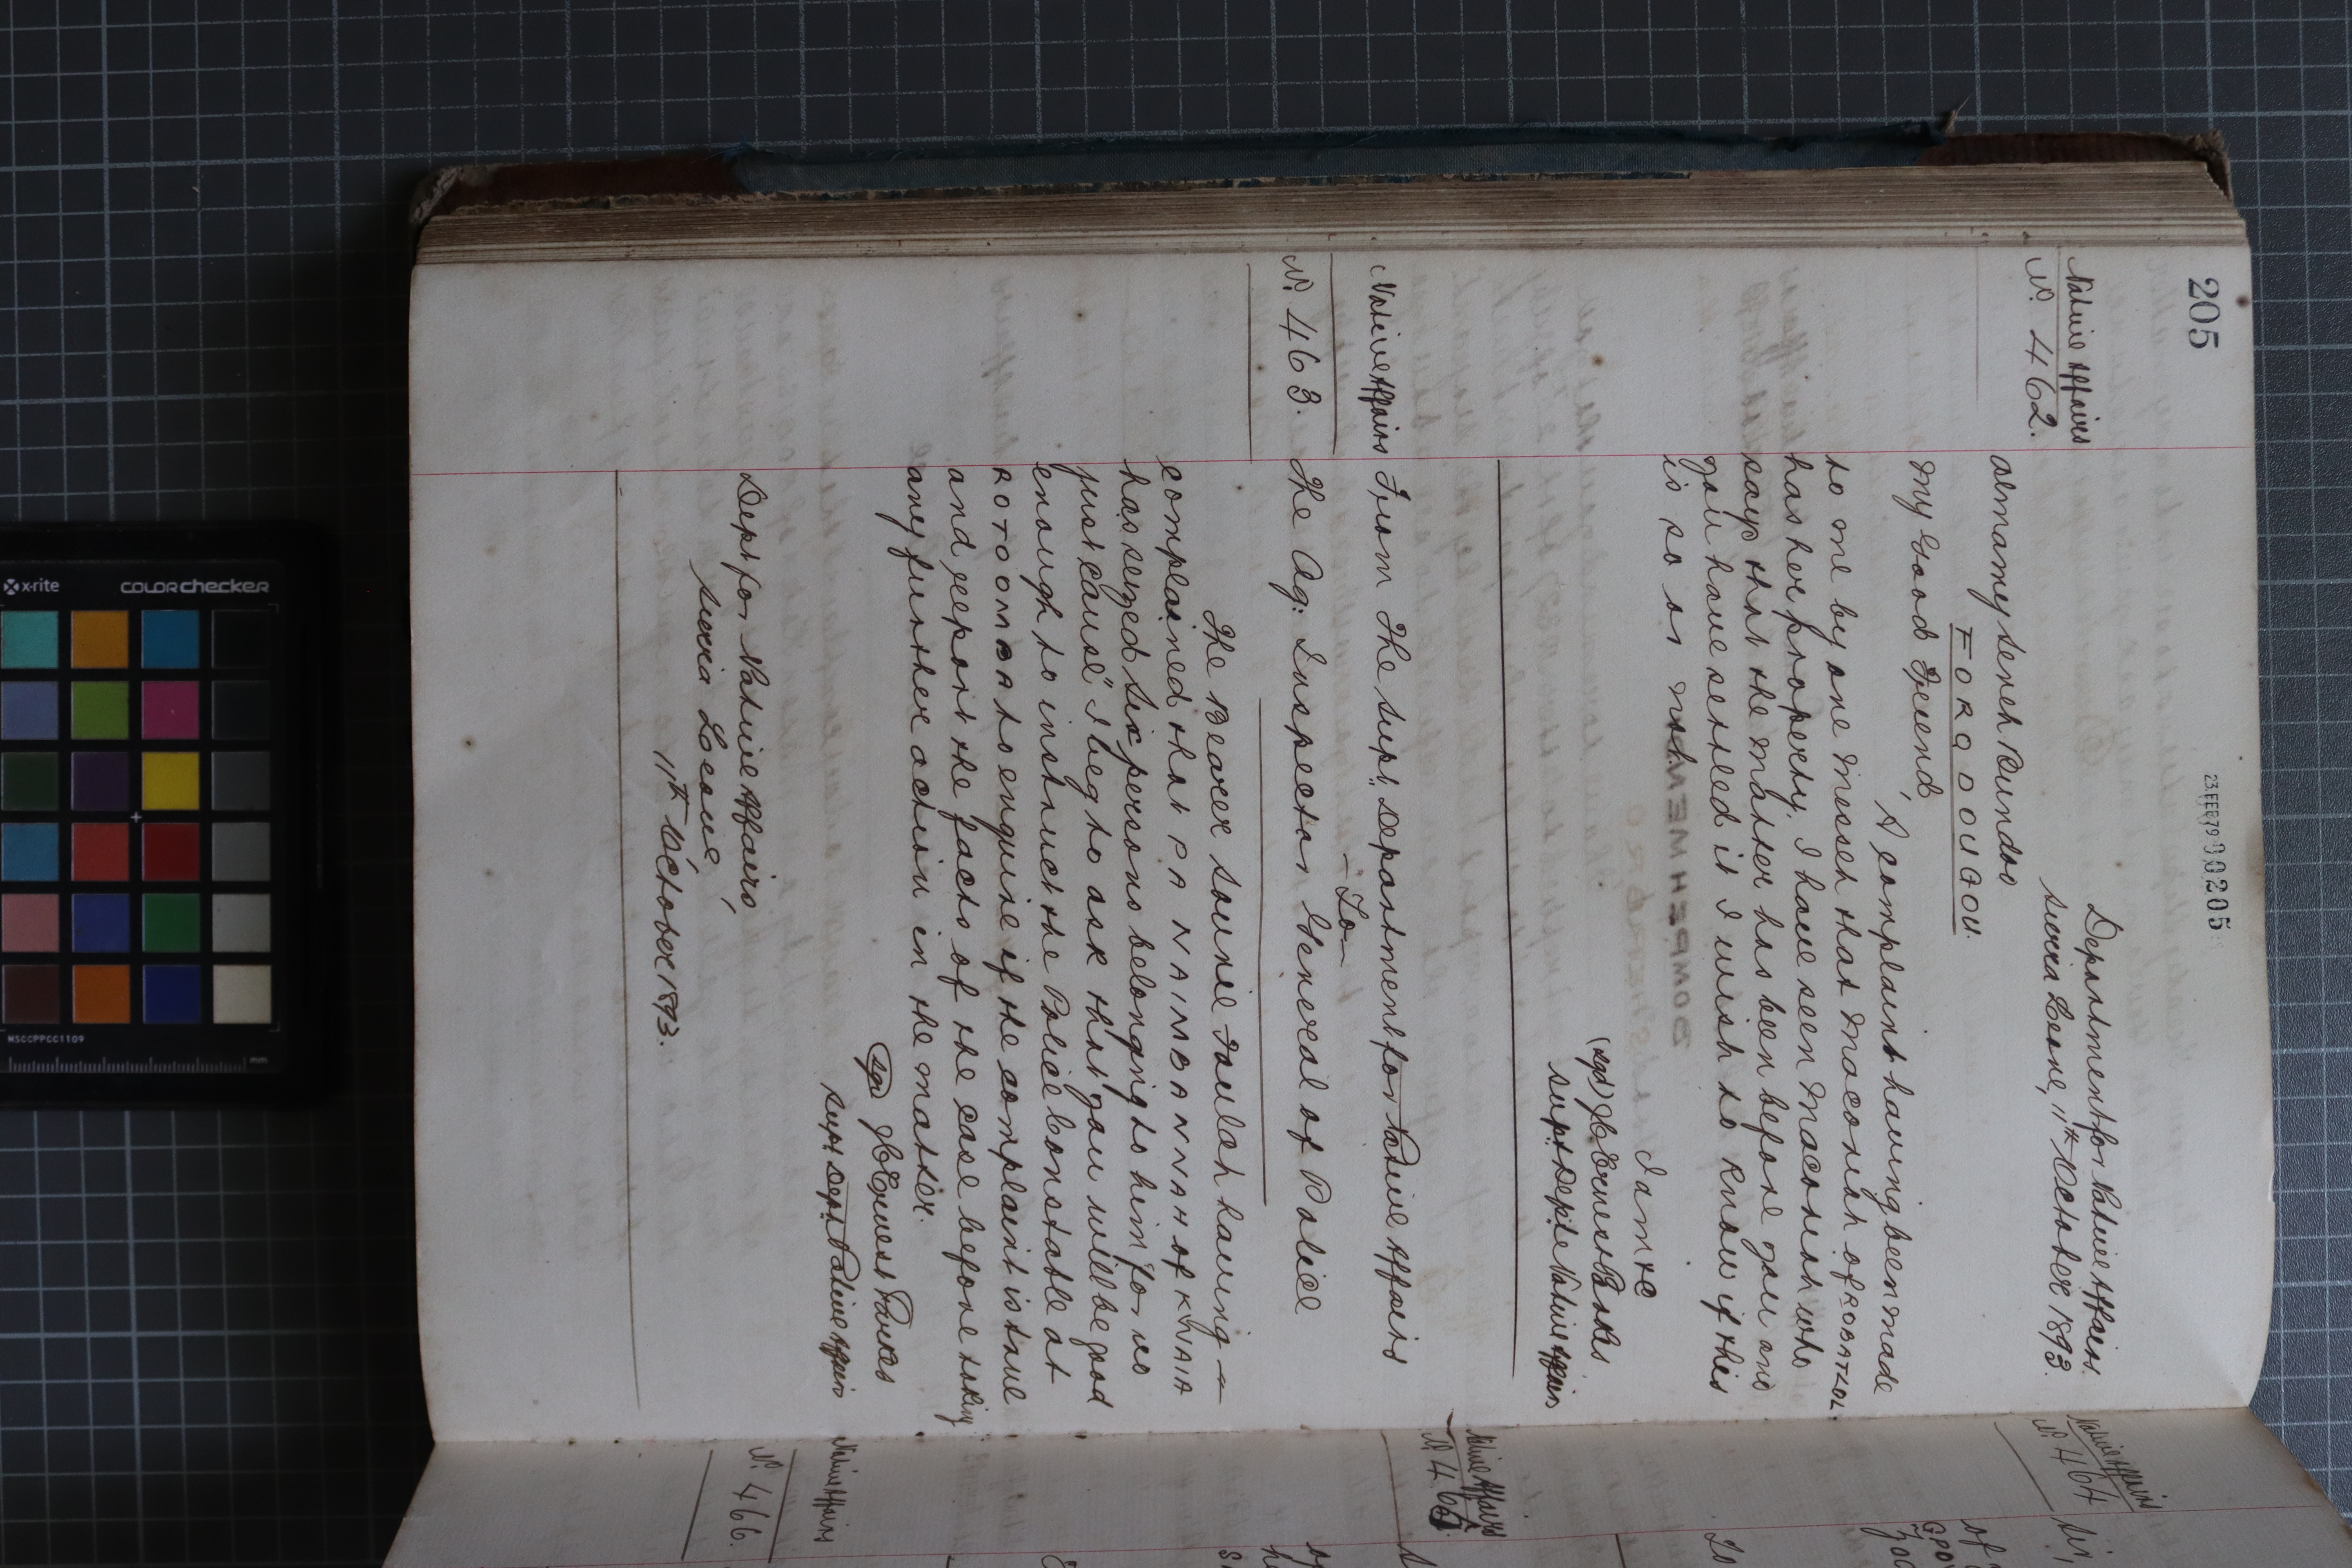 205
23.FEB79 00205
Native Affairs
No. 462.
Department for Native Affairs
Sierra Leone, 11th October 1893.
Almamy Seneh Bundoo
FORODOUGOU
My Good Friend,
A complaint having been made
to me by one Messeh that Maconah of ROBATTOL
has her property. I have seen Maconah who
says that the matter has been before you and
you have settled it I wish to know if this
is so or not.
I am etc
(sgd) J C Ernest Parkes
Supt Dept Native Affairs
Native Affairs
No. 463.
From The Supt Department for Native Affairs
—To—
The Ag: Inspector General of Police
The Bearer Sourie Foulah having —
complained that PA NAIMBANNAH of KHAIA
has seized six persons belonging to him "for no
just cause" I beg to ask that you will be good
enough to instruct the Police Constable at
ROTOOMBA to enquire if the complaint is true
and report the facts of the case before taking
any further action in the matter.
(sgd) J C Ernest Parkes
Supt Dept Native Affairs
Dept for Native Affairs,
Sierra Leone,
11th October 1893.
Native Affairs
No. 464
Native Affairs
Native Affairs
No. 466.
x-rite
colorchecker
MSCCPPCC1109
mm